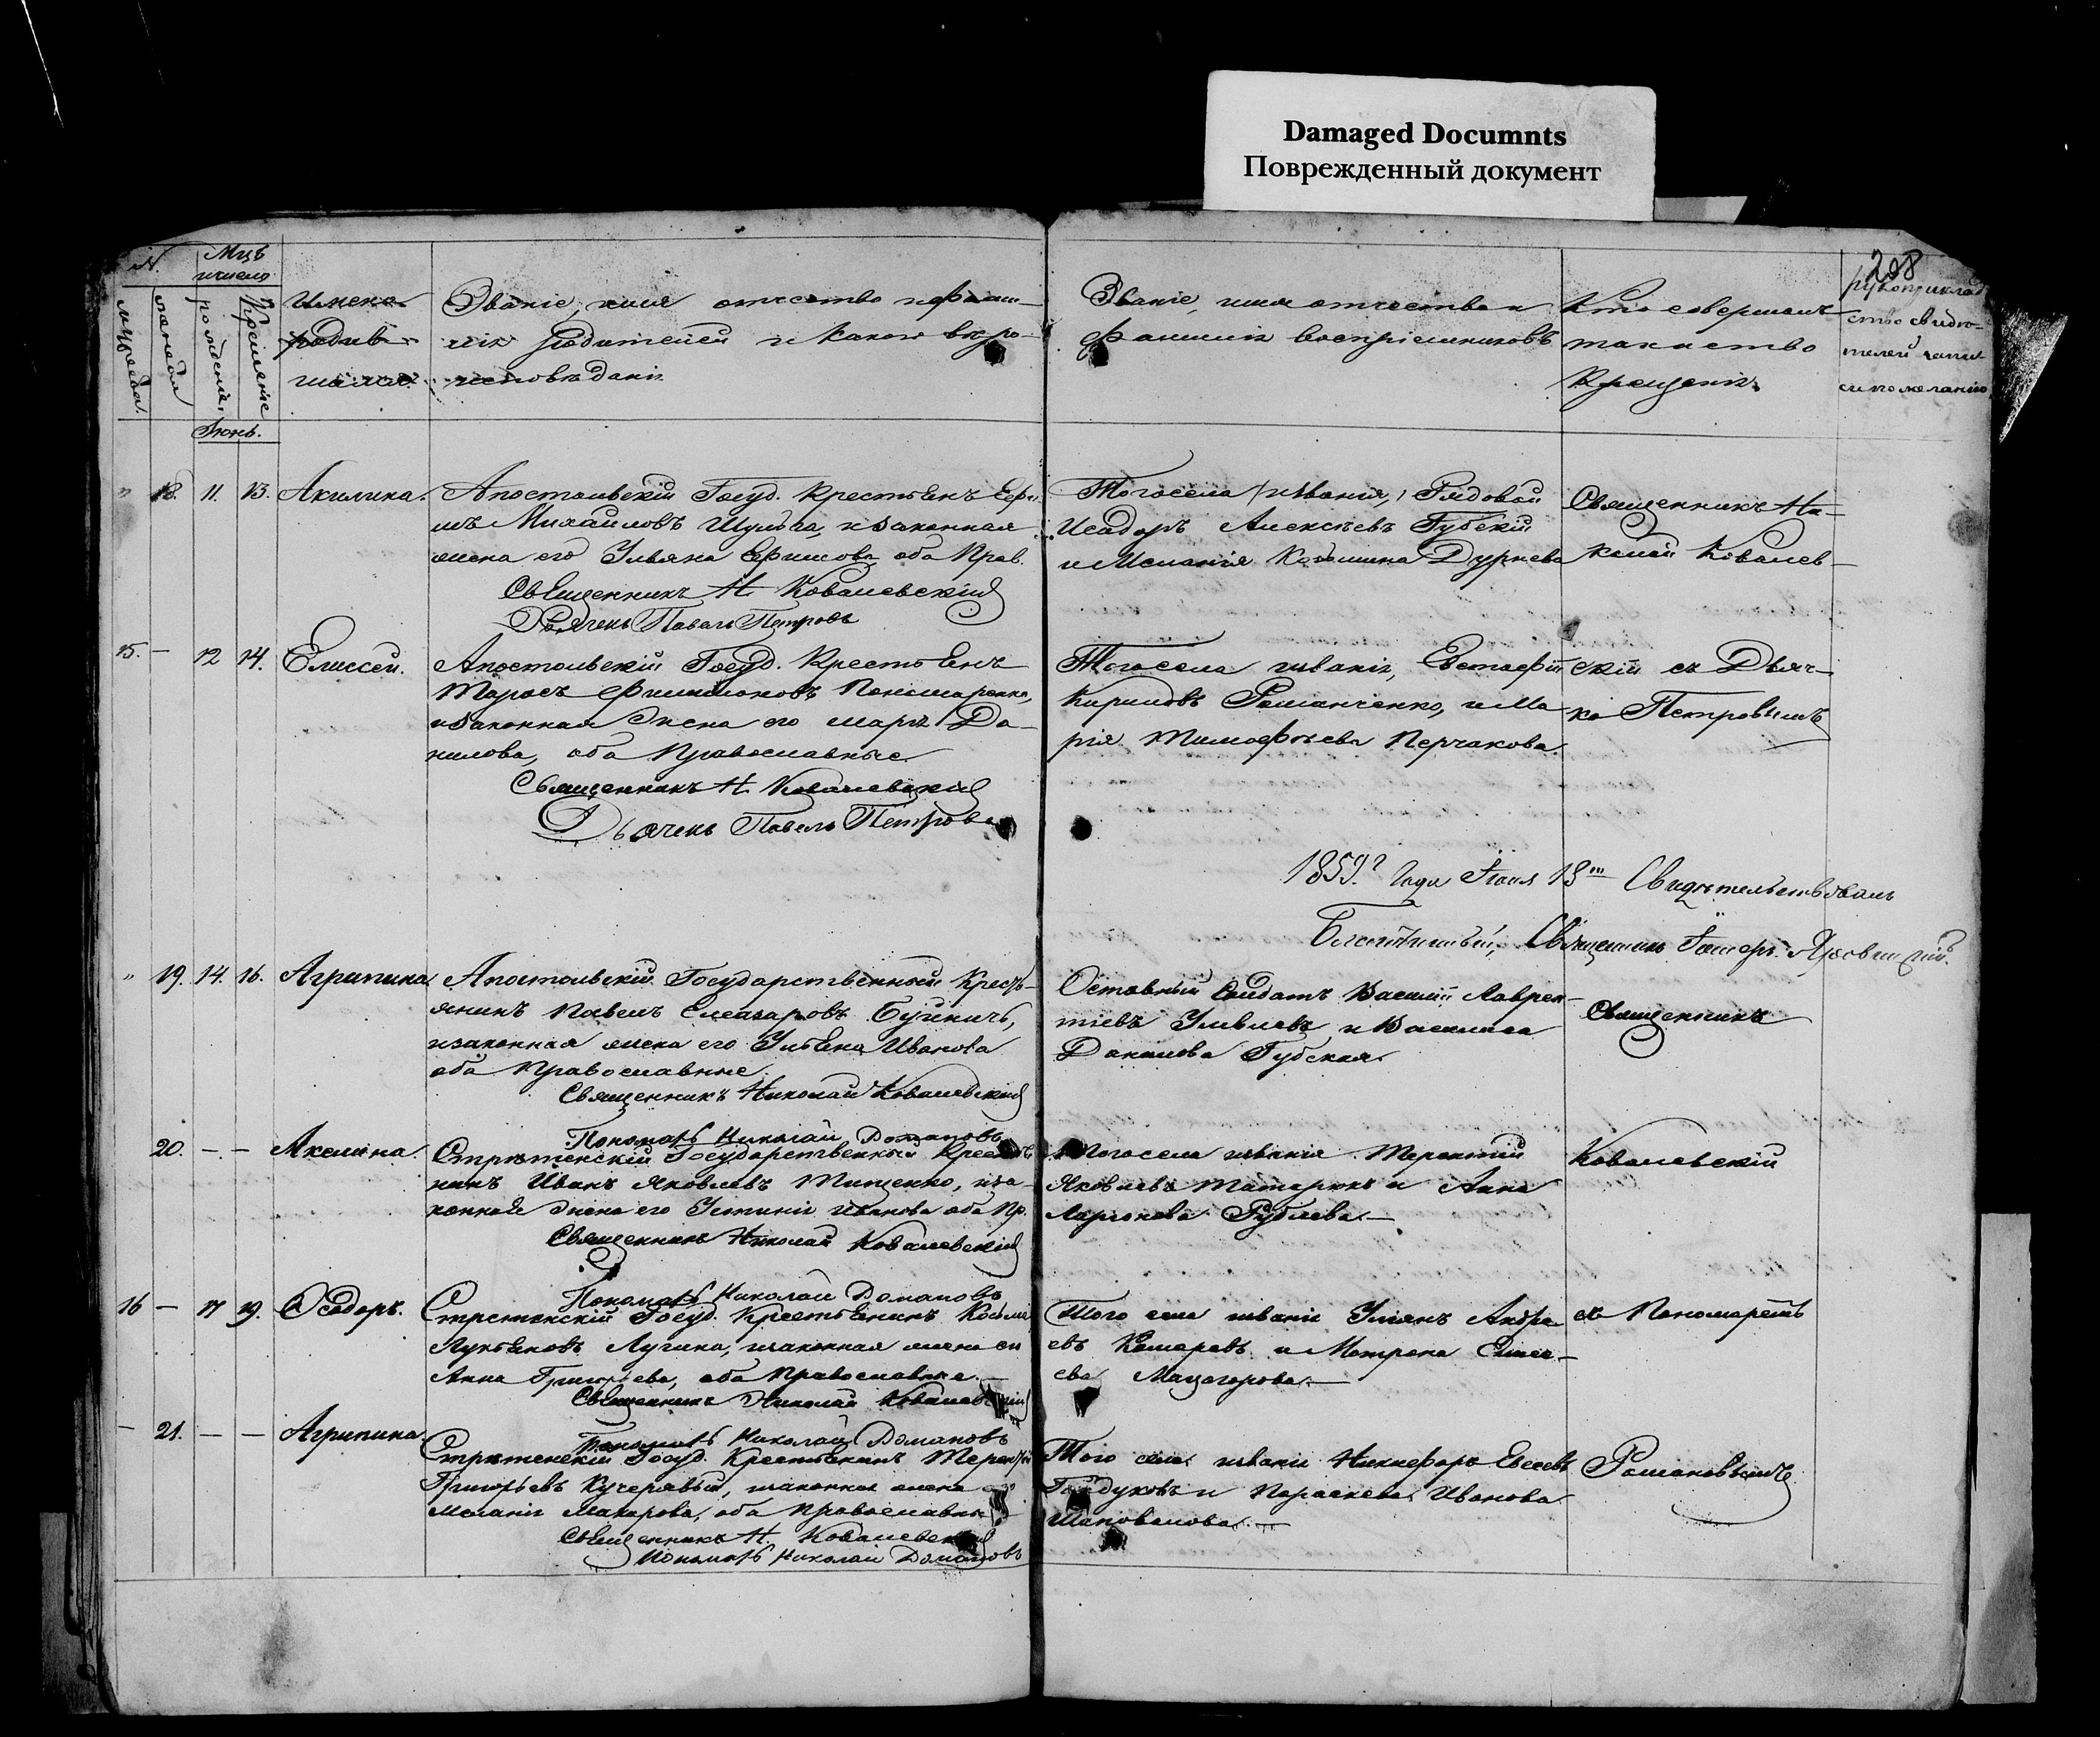 Damaged Documnts
Поврежденный документ
208
№.
Мцъ
и число
мужеска.
женска
рожденія,
крещенія
Имена
родив-
шихся.
Званіе, имя отчество и фами-
лія родителей и какого вѣро-
исповѣданія
Званіе, имя отчество и
фамилія воспріемниковъ
Кто совершалъ
таинство
Крещенія.
рукоприклад
ство свидѣ-
телей записи
по желанію
Іюнь.
" 18. 11. 13. Акилина.
Апостольскій Госуд. Крестьянъ Ефи
мъ Михайловъ Шульга, и законная
жена его Ульяна Ефимова оба Прав.
Священникъ Н Ковалевскій
Дьячекъ Павелъ Петровъ
Того села / иванія, / Рядовой
Исадоръ Алексѣевъ Губскій
и Меланія Козьмина Дурнева
Священникъ Ни-
колай Ковалев-
15. — 12 14. Елиссей.
Апостольскій Госуд. Крестьянъ
Тарасъ Филимоновъ Пономаренко,
и законная жена его Марія Да-
нилова, оба Православные.
Священникъ Н. Ковалевскій
Дьячекъ Павелъ Петровъ
Того села иванія, Евстафій
Кириловъ Романченко, и Ма
рія Тимофѣева Перчакова.
скій съ Дьяч-
ко Петровымъ
1859го Года Іюля 13го Свидѣтельствовалъ
Благочинный, Священникъ
" 19. 14. 16. Агрипина.
Апостольскій Государственной Кресть-
янинъ Павелъ Елеазаровъ
и законная жена его Ульяна Иванова
оба Православные.
Священникъ Николай Ковалевскій
Пономарь Николай Домановъ
Оставный Солдатъ Василій Лаврен-
тіевъ и Василиса
Данилова Губская.
Священникъ
20. — — Акелина.
Стрѣтенскій Государственный Кресть
нинъ Иванъ Яковлевъ Тищенко, и за-
конная жена его Устинія Иванова оба Пр.
Священникъ Николай Ковалевскій
Пономарь Николай Домановъ
Того села иванія Терентій
Яковлевъ Татаринъ и Анна
Ларіонова Рублева. —
Ковалевскій
16 — 17 19. Ѳеодоръ.
Стретенскій Госуд. Крестьянинъ Козьма
Лукьяновъ Лугина, и законная жена его
Анна Григорьева, оба Православные. —
Священникъ Николай Ковалевскій
Пономарь Николай Домановъ
Того села иванія Улианъ Андре
евъ Комаревъ и Матрона
ева Мацегорова. —
съ Пономаремъ
— 21. — — Агрипина.
Стрѣтенскій Госуд. Крестьянинъ Терентій
Григорьевъ Кучерявый, и законная жена его
Меланія Макарова, оба православные
Священникъ Н. Ковалевскій
Пономарь Николай Домановъ
Того села иванія Никифоръ Евсеевъ
Гайдуковъ и Параскева Иванова
Шаповалова. —
Романовымъ.